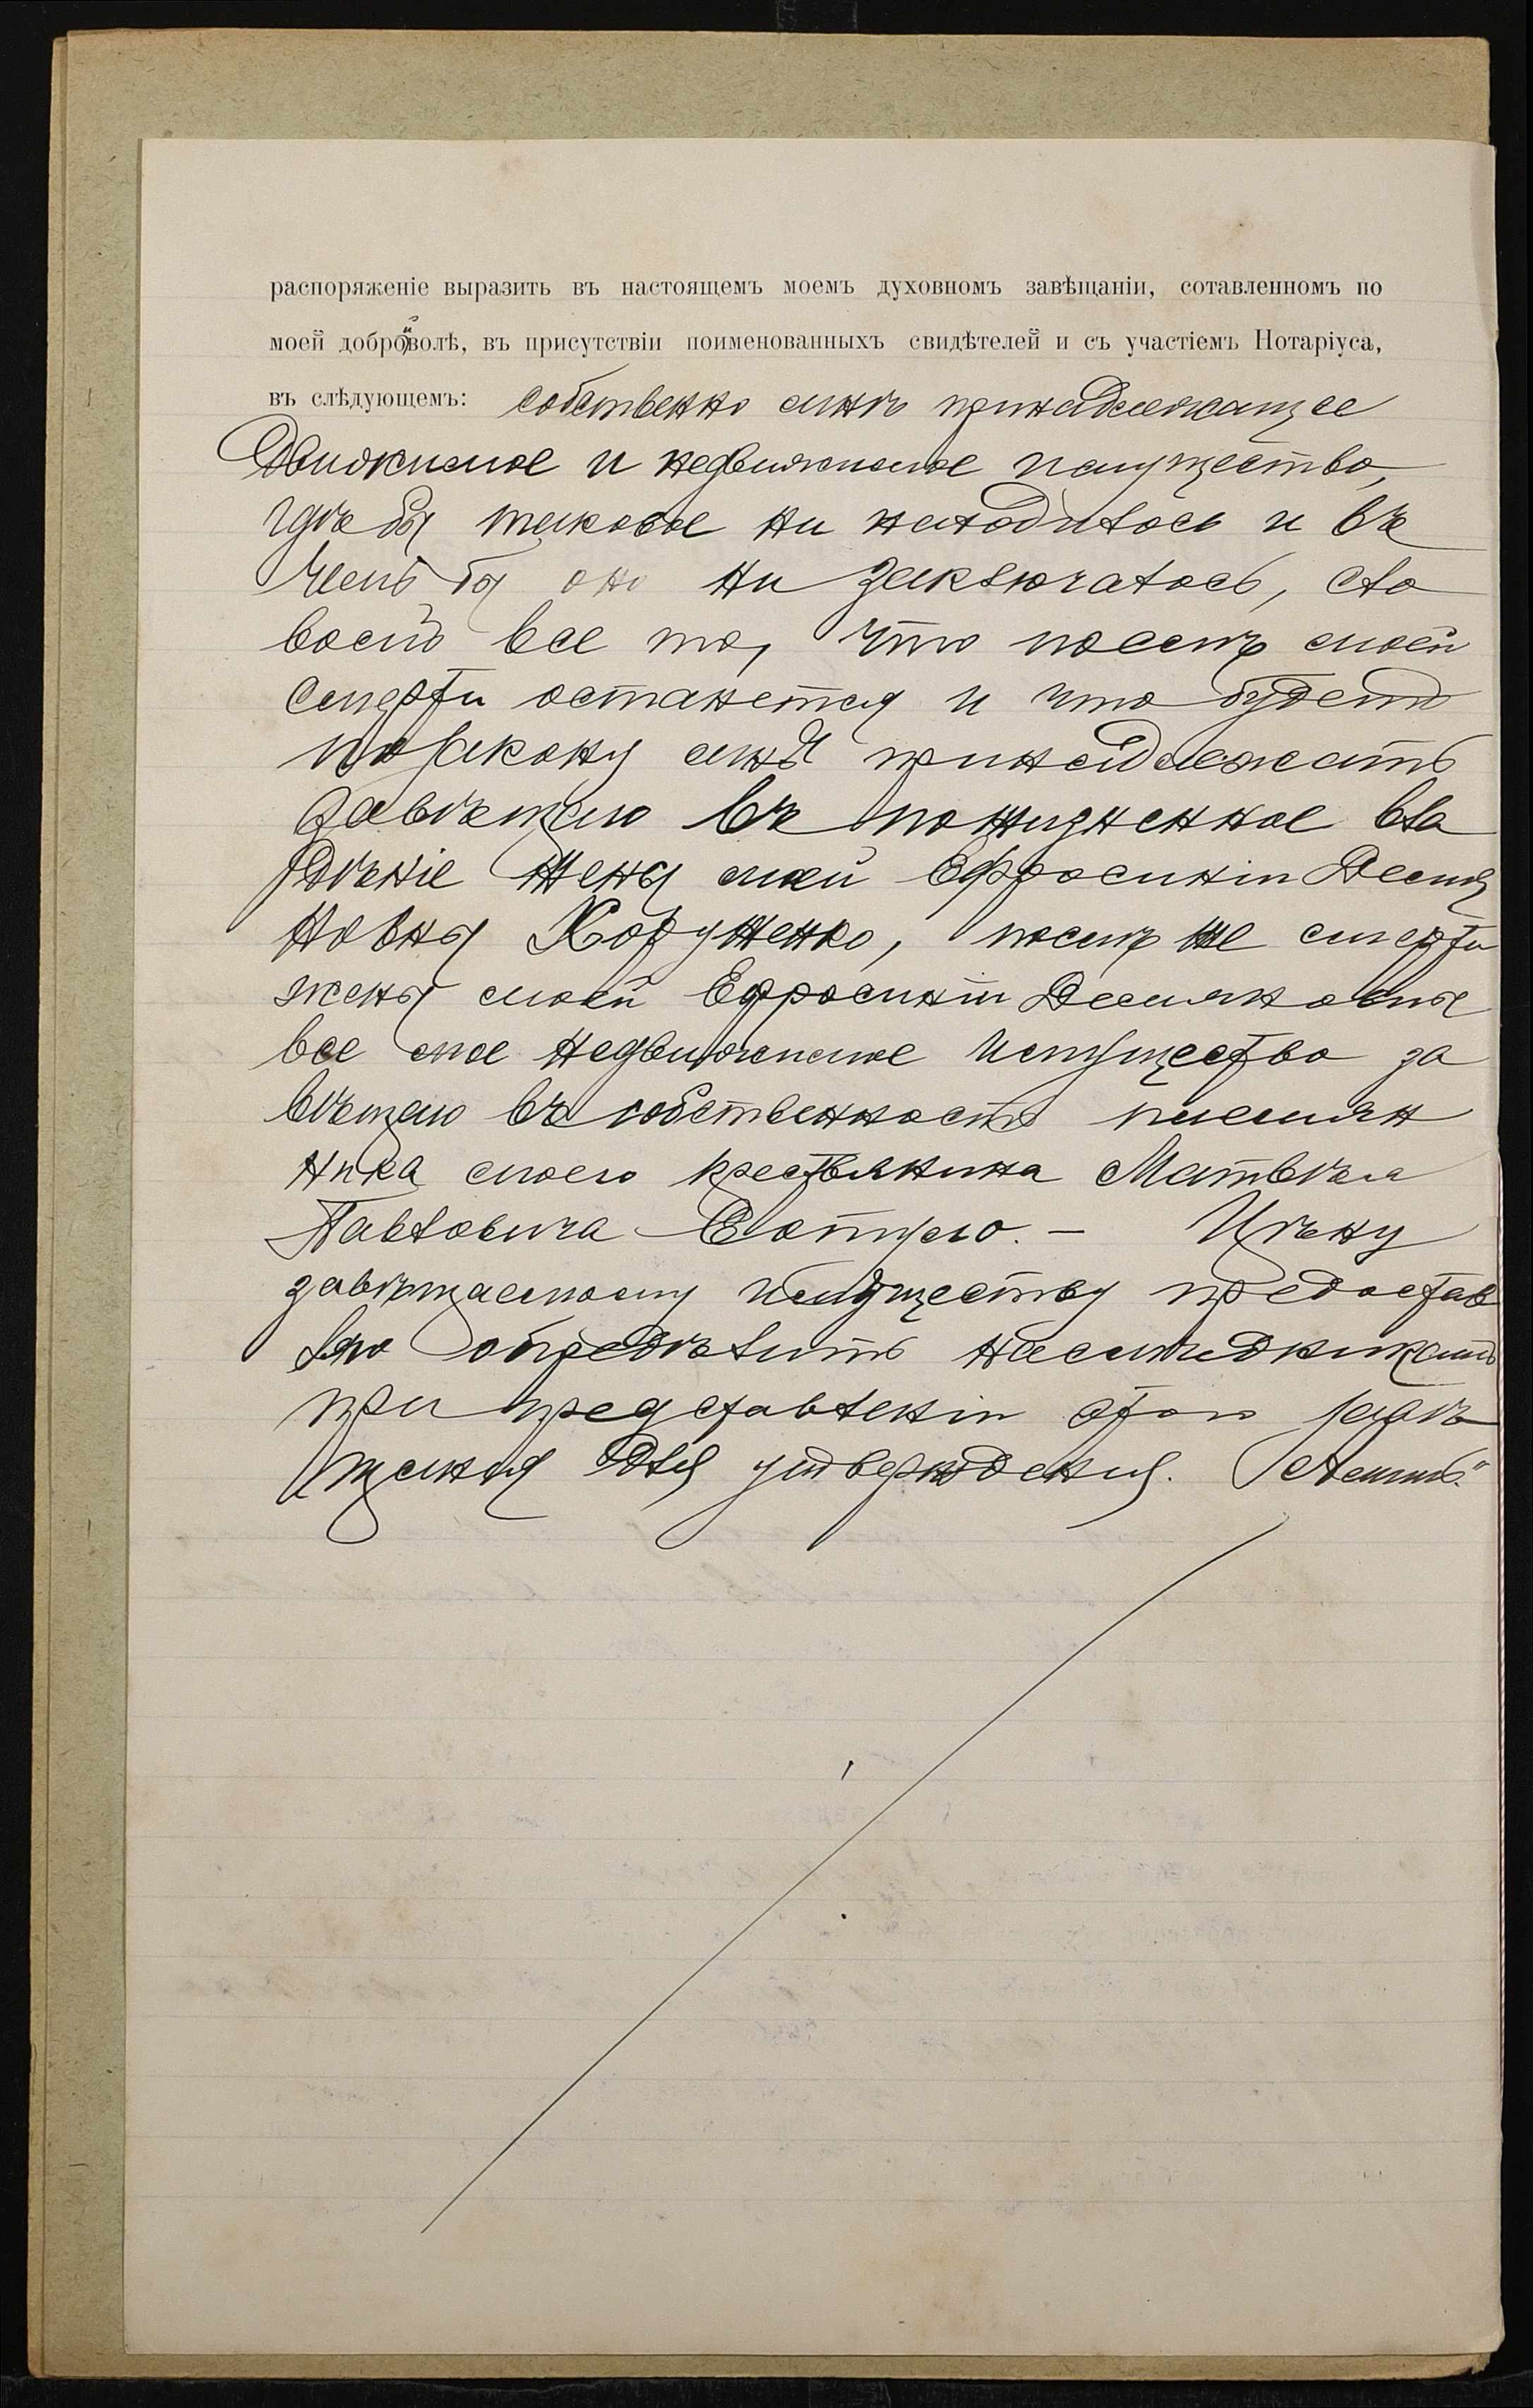 распоряженіе выразить въ настоящемъ моемъ духовномъ завѣщаніи, сотавленномъ по
моей доброй волѣ, въ присутствіи поименованныхъ свидѣтелей и съ участіемъ Нотаріуса,
въ слѣдующемъ: собственно мнѣ принадлежащее
движимое и недвижимое имущество,
гдѣ бы таковое ни находилось и въ
чемъ бы оно ни заключалось, сло
вомъ все то, что послѣ моей
смерти останется и что будетъ
по закону мнѣ принадлежать
завѣщаю въ пожизненное вла
дѣніе жены моей Ефросиніи Демья
новны Хоруженко, послѣ же смерти
жены моей Ефросиніи Демьяновны
все мое недвижимое имущество за
вѣщаю въ собственность племян
ника моего крестьянина Матвѣя
Павловича. — Цѣну
завѣщаемому имуществу предостав
ляю опредѣлить наслѣдникамъ
при представленіи этого завѣ
щанія для утвержденія. Аминь."